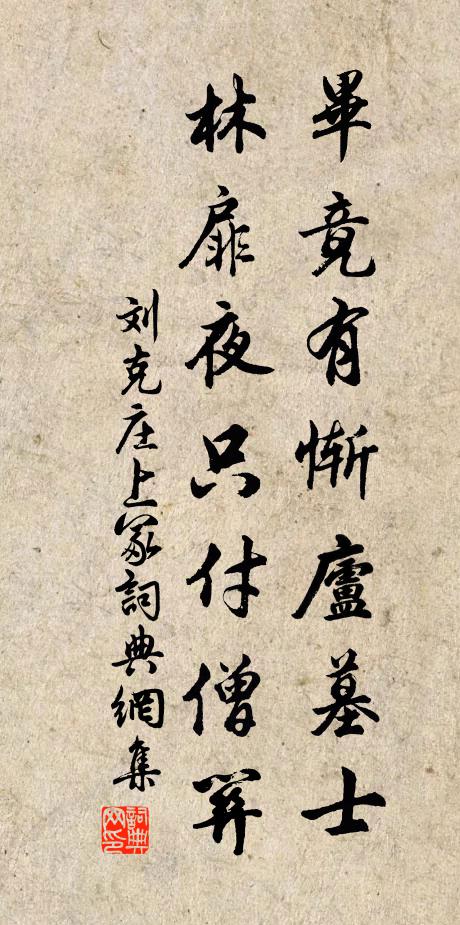 畢竟有慚廬墓士
林扉夜只付僧關
刘克庄上冢詞典網集
詞典网印